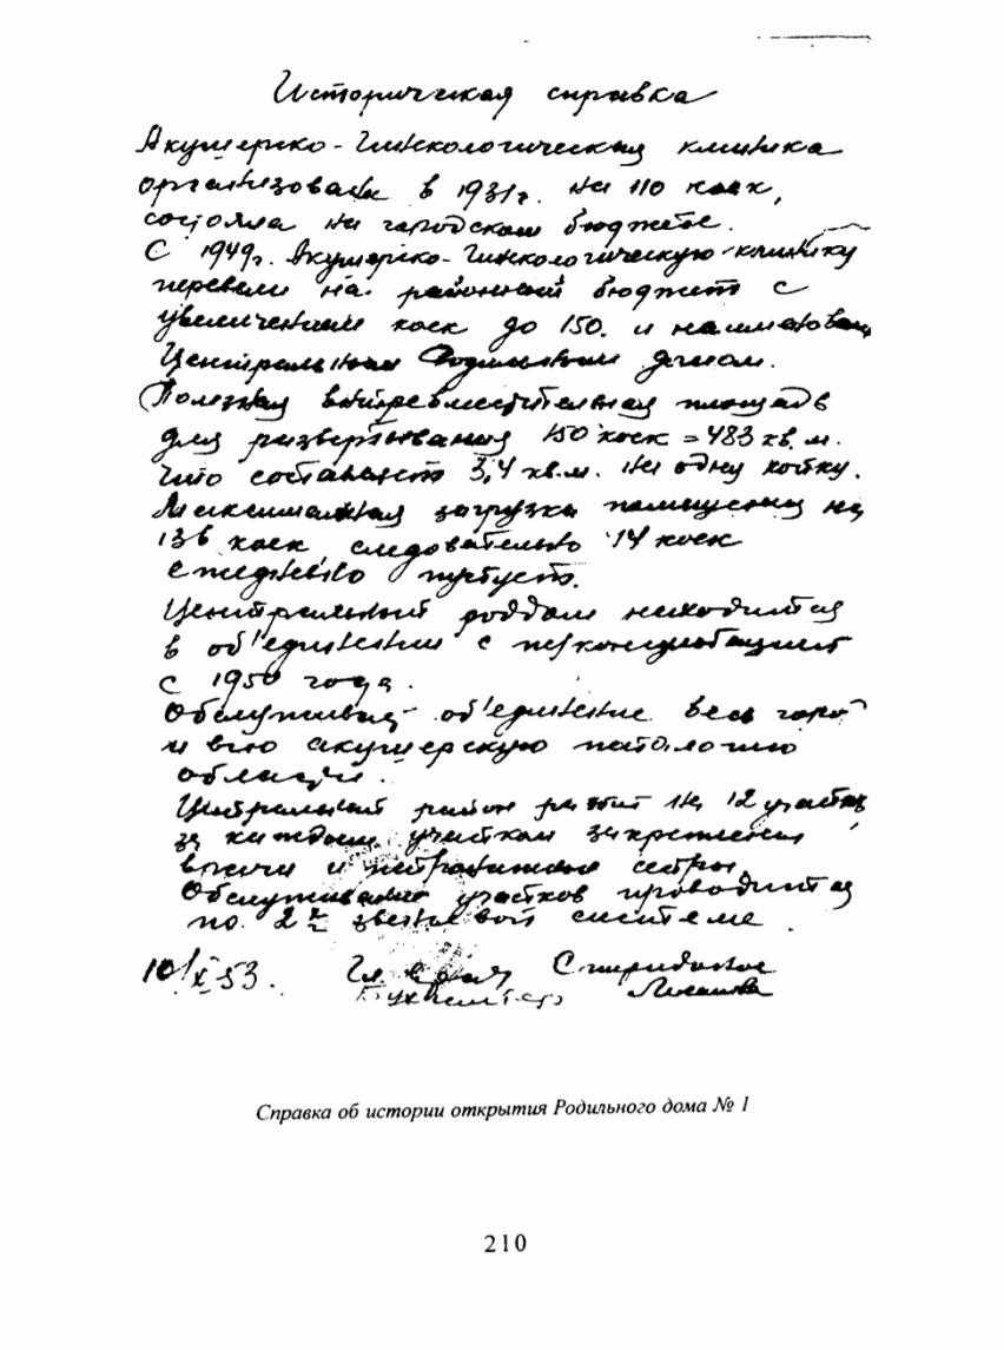 Историческая справка
Акушерско-Гинекологическая клиника
организована в 1931г. на 110 коек,
состояла на городском бюджете.
С 1949г. Акушерско-Гинекологическую клинику
перевели на районный бюджет с
увеличением коек до 150. и наименован
Центральным Родильным домом.
(Полезная площадь
для развертывания 150 коек = 483 кв. м.
что составляет 3,4 кв.м. на одну койку.
Максимальная загрузка помещения на
136 коек, следовательно 14 коек
ежедневно пустует.
Центральный роддом находится
в об'единении с ж/консультацией
с 1950 года.
Обслуживает об'единение весь город
и всю акушерскую патологию
области.
Центральный район разбит на 12 участков,
за каждым участком закреплены
врачи и патронажные сестры.
Обслуживание участков проводится
по 2х звеньевой системе.
10/X 53. Гл. врач Спиридонов
Бухгалтер
Справка об истории открытия Родильного дома № 1
210